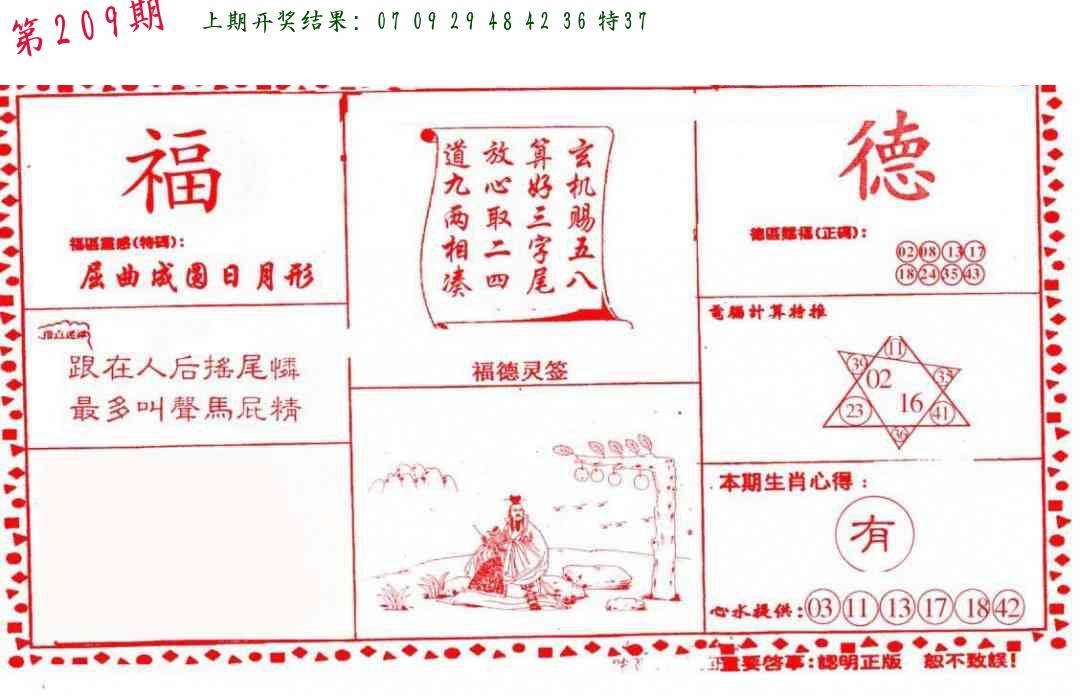 第209期
上期开奖结果: 07 09 29 48 42 36 特37
福
福區靈感(特碼):
屈曲成圆日月形
跟在人后搖尾憐
最多叫聲馬屁精
玄机赐五八
算好三字尾
放心取二四
道九两相凑
福德灵签
德
德區賜福(正碼):
02 08 13 17
18 24 35 43
電腦計算特推
11
39 02 35
23 16 41
36
本期生肖心得:
有
心水提供:03 11 13 17 18 42
重要啓事:認明正版 恕不致誤!